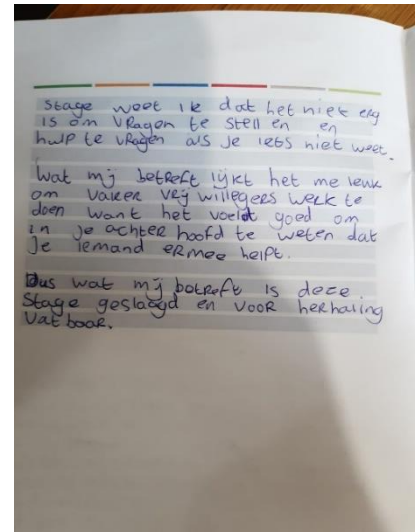 Stage weet ik dat het niet erg
is om vragen te stellen en
hulp te vragen als je iets niet weet.
Wat mij betreft lijkt het me leuk
om vaker vrij willegers werk te
doen want het voeldt goed om
in je achter hoofd te weten dat
je iemand ermee helpt.
Dus wat mij betreft is deze
Stage geslaagd en voor herhaling
vatbaar.